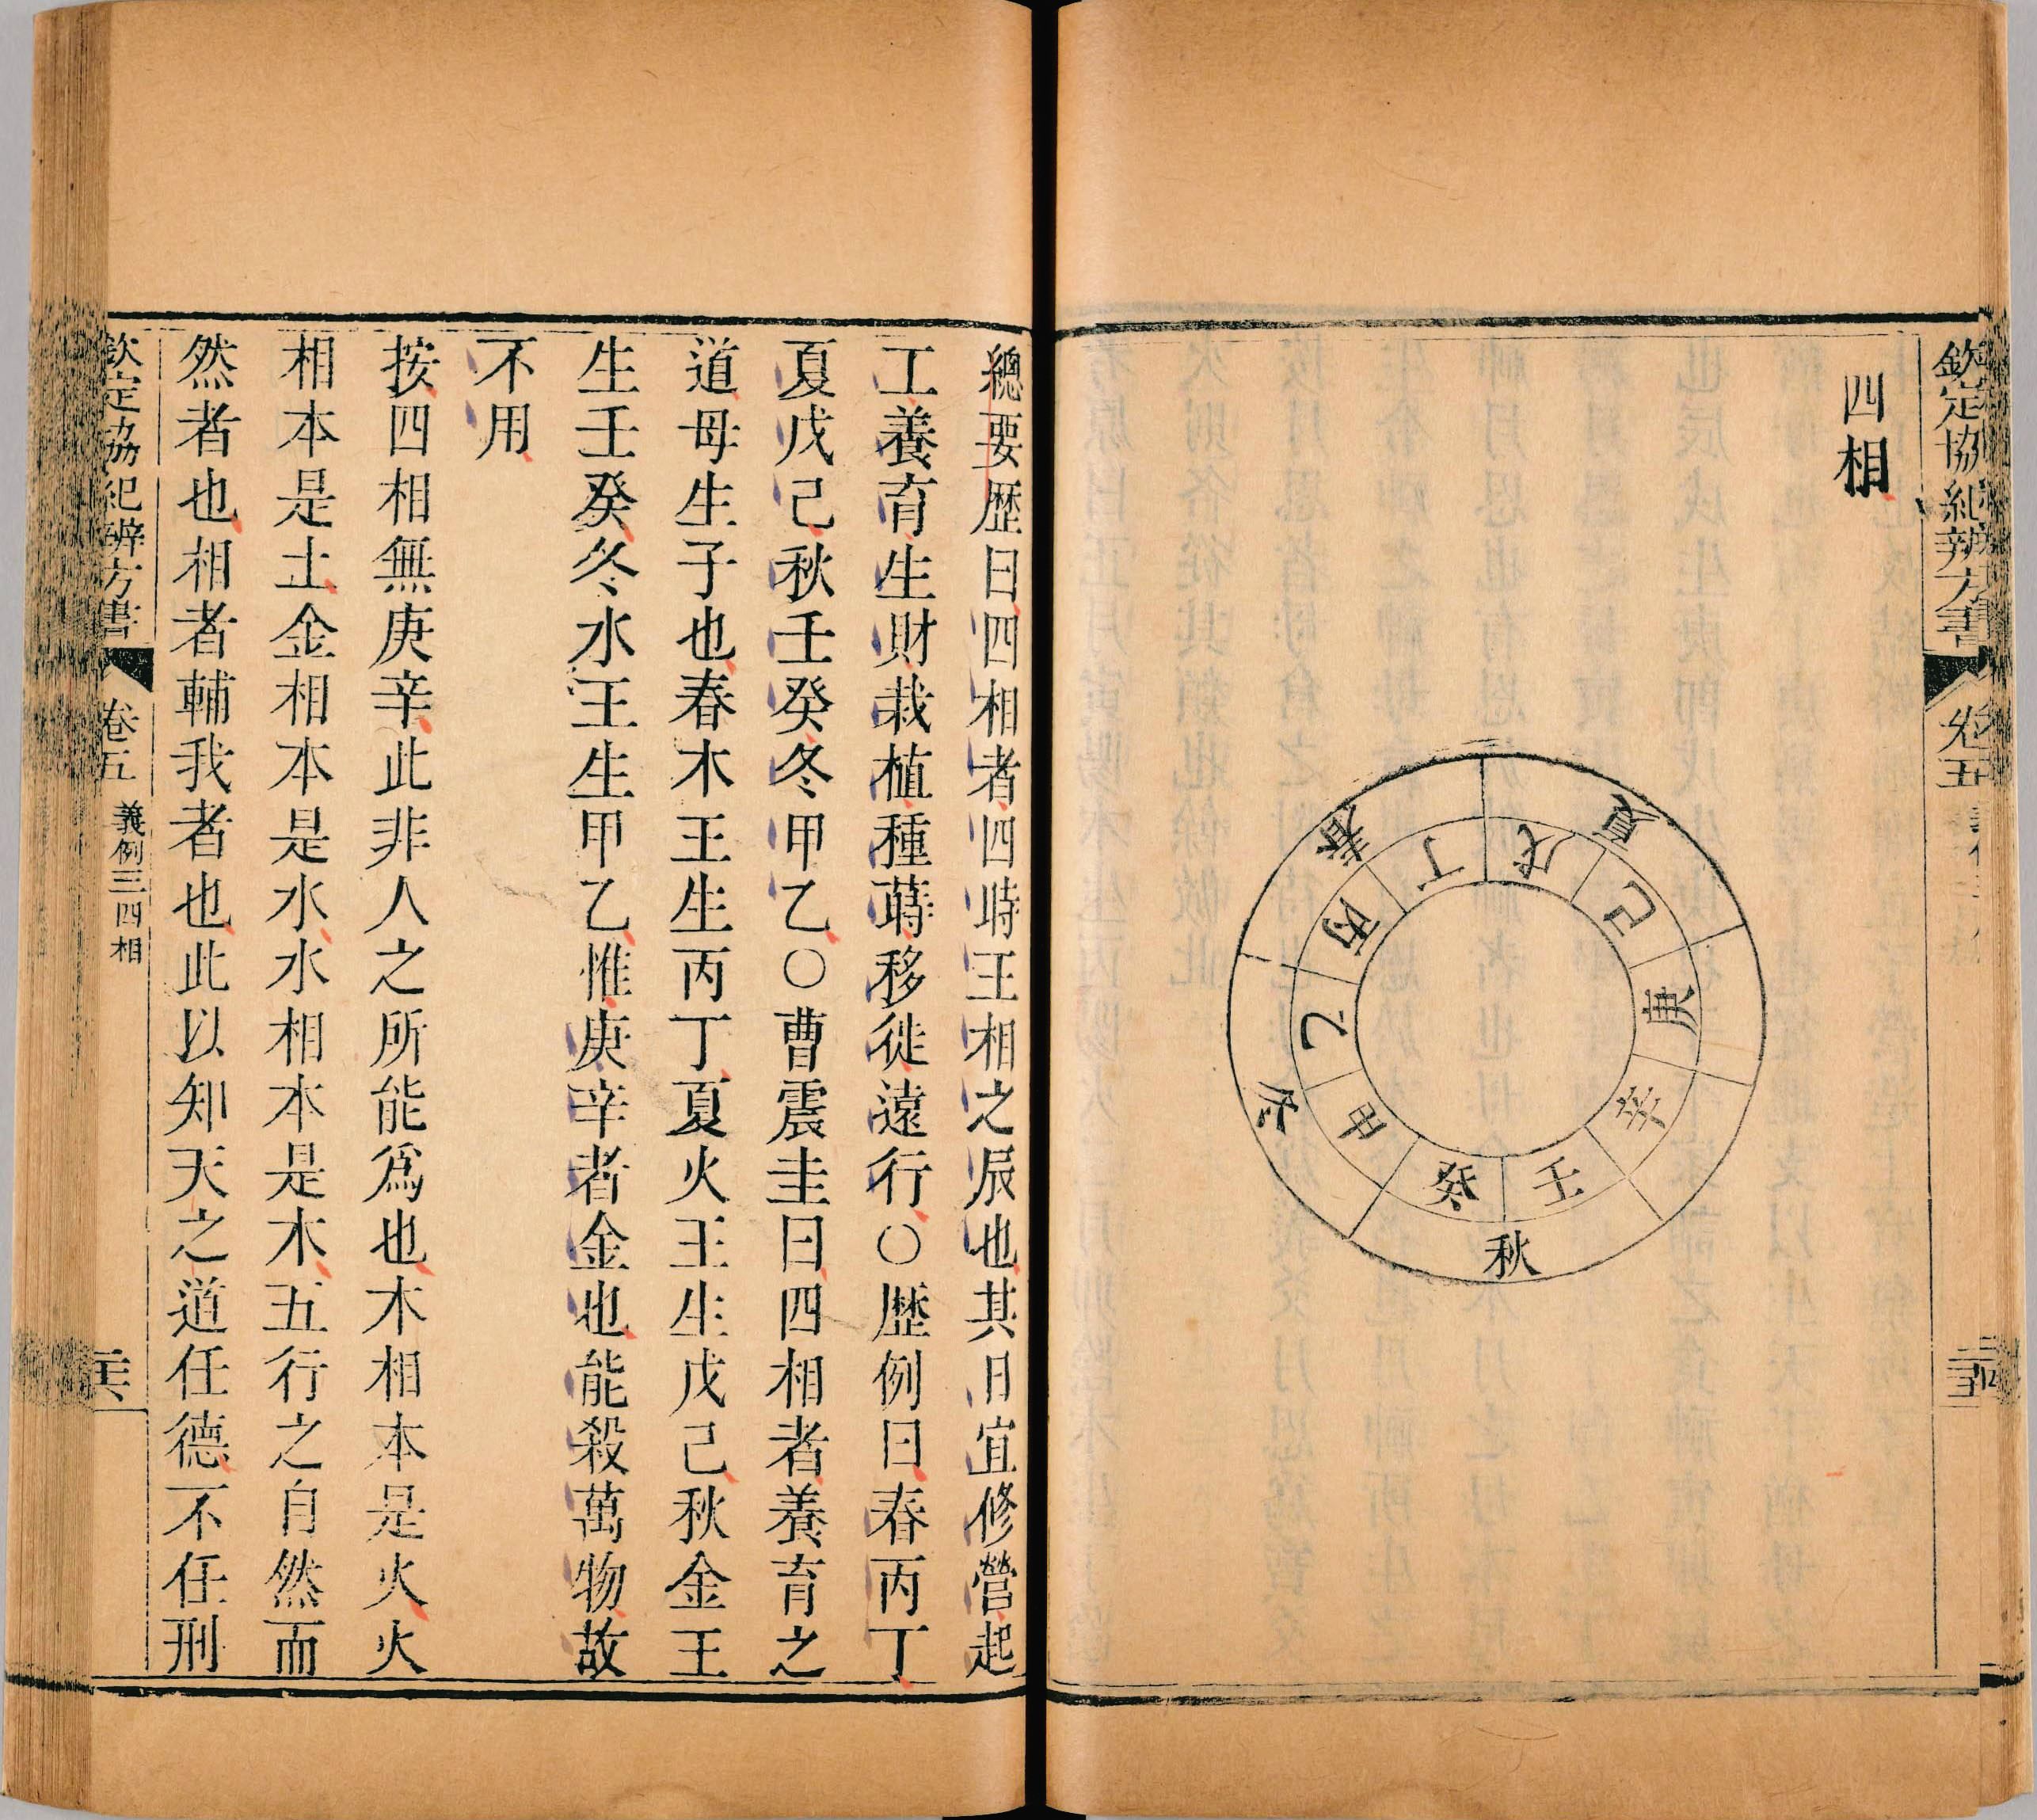 欽定協紀辨方書
卷五
四相
春
夏
秋
冬
丁
戊
己
庚
辛
壬
癸
甲
乙
丙
總要歷曰四相者四時王相之辰也其日宜修營起
工養育生財栽植種蒔移徙遠行○歷例曰春丙丁
夏戊己秋壬癸冬甲乙○曹震圭曰四相者養育之
道母生子也春木王生丙丁夏火王生戊己秋金王
生壬癸冬水王生甲乙惟庚辛者金也能殺萬物故
不用
按四相無庚辛此非人之所能爲也木相本是火火
相本是土金相本是水水相本是木五行之自然而
然者也相者輔我者也此以知天之道任德不任刑
欽定協紀辨方書
卷五
義例三四相